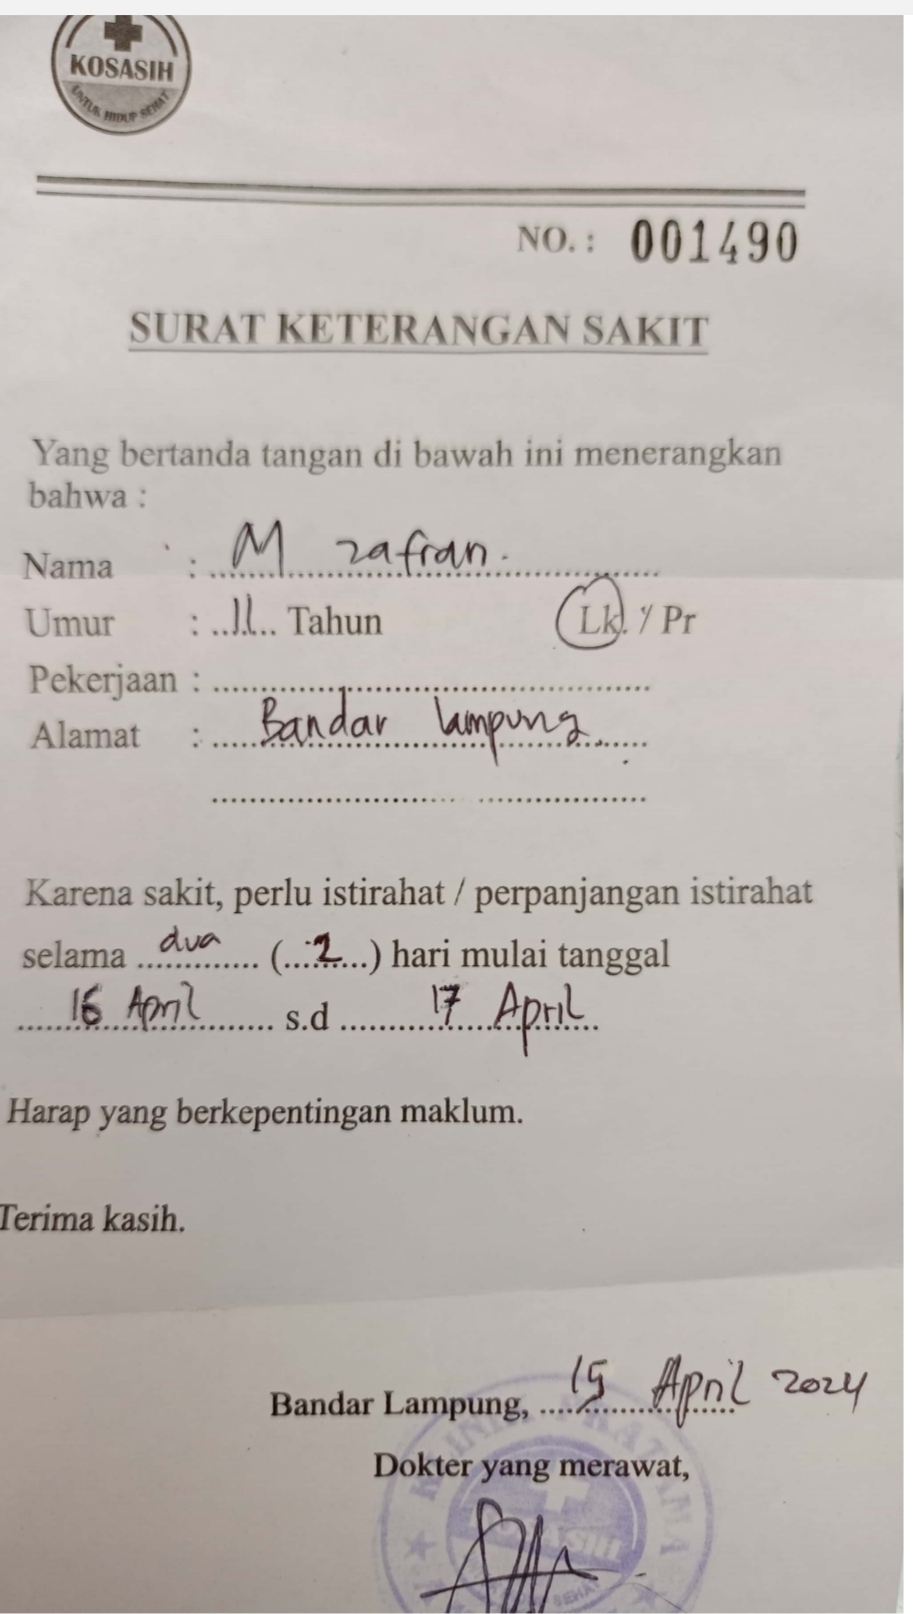 KOSASIH
UNTUK HIDUP SEHAT
NO. : 001490
SURAT KETERANGAN SAKIT
Yang bertanda tangan di bawah ini menerangkan
bahwa :
Nama : M zafran.
Umur : 11 Tahun Lk. / Pr
Pekerjaan :
Alamat : Bandar lampung
Karena sakit, perlu istirahat / perpanjangan istirahat
selama dua (2) hari mulai tanggal
16 April s.d 17 April
Harap yang berkepentingan maklum.
Terima kasih.
Bandar Lampung, 15 April 2024
Dokter yang merawat,
KOSASIH